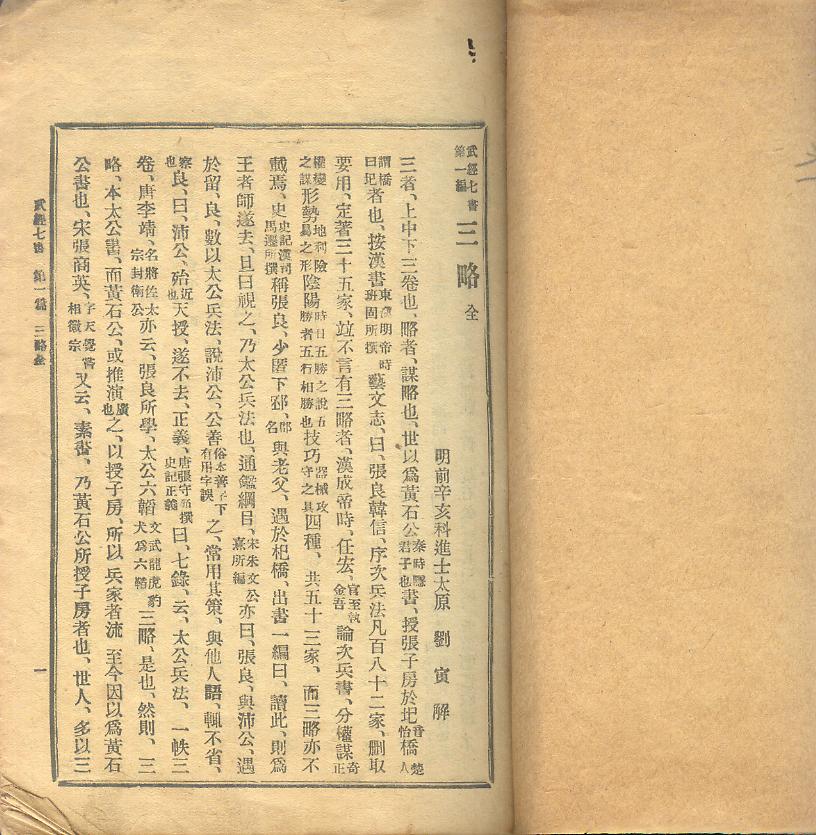 武經七書 第一編 三略 全
明前辛亥科進士太原 劉寅解
三者、上中下三卷也、略者、謀略也、世以爲黃石公秦時隱君子也書、授張子房於圯音怡橋楚人
謂橋曰圯者也、按漢書東漢明帝時班固所撰藝文志、曰、張良韓信、序次兵法凡百八十二家、刪取
要用、定著三十五家、竝不言有三略者、漢成帝時、任宏、官至執金吾論次兵書、分權謀奇正
權變之謀形勢地利險易之形陰陽時日五勝之說五勝者五行相勝也技巧器械攻守之具四種、共五十三家、而三略亦不
載焉、史史記漢司馬遷所撰稱張良、少匿下邳、郡名與老父、遇於圯橋、出書一編曰、讀此、則爲
王者師遂去、旦日視之、乃太公兵法也、通鑑綱目、宋朱文公熹所編亦曰、張良、與沛公、遇
於留、良、數以太公兵法、說沛公、公善俗本善下有用字誤之、常用其策、與他人語、輒不省、
察也良、曰、沛公、殆近也天授、遂不去、正義、唐張守節撰史記正義曰、七錄、云、太公兵法、一帙三
卷、唐李靖、名將佐太宗封衛公亦云、張良所學、太公六韜文武龍虎豹犬爲六韜三略、是也、然則、三
略、本太公書、而黃石公、或推演廣也之、以授子房、所以兵家者流至今因以爲黃石
公書也、宋張商英、字天覺嘗相徽宗又云、素書、乃黃石公所授子房者也、世人、多以三
武經七書 第一篇 三略全 一